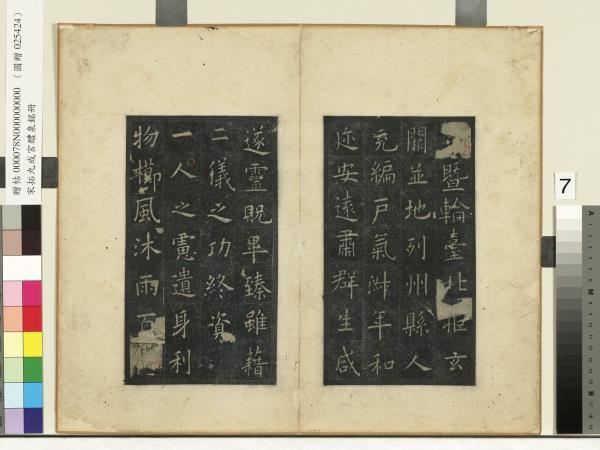 暨輪臺北拒玄
闕並地列州縣人
充編戶氣淑年和
迩安遠肅群生咸
遂靈貺畢臻雖藉
二儀之功終資
一人之慮遺身利
物櫛風沐雨百
贈帖 000078N000000000 （國贈 025424）
宋拓九成宮醴泉銘冊
7